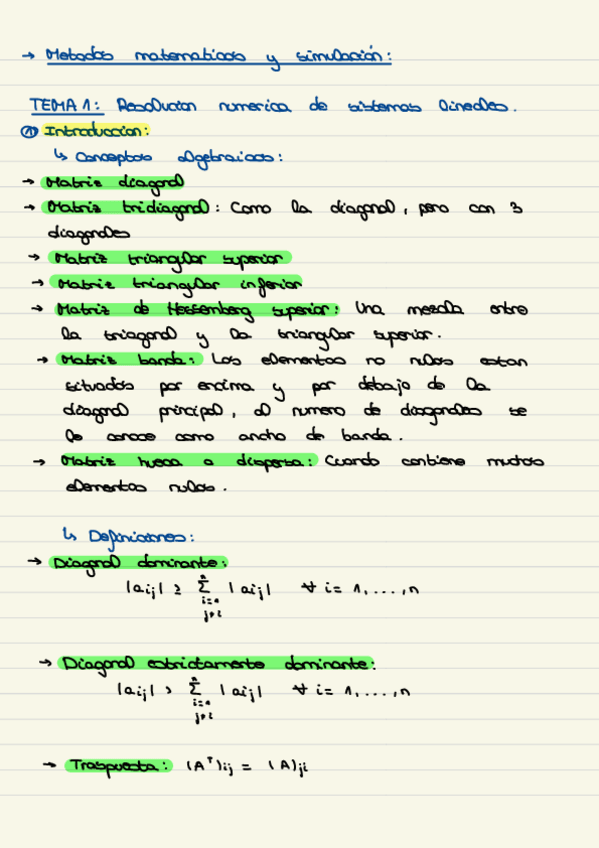 → Metodos matematicos y simulación:
TEMA 1: Resolucion numerica de sistemas lineales.
① Introduccion:
↳ Conceptos algebraicos:
→ Matriz diagonal
→ Matriz tridiagonal: Como la diagonal, pero con 3
diagonales
→ Matriz triangular superior
→ Matriz triangular inferior
→ Matriz de Hessenberg superior: Una mezcla entre
la triagonal y la triangular superior.
→ Matriz banda: Los elementos no nulos estan
situados por encima y por debajo de la
diagonal principal, al numero de diagonales se
le conoce como ancho de banda.
→ Matriz hueca o dispersa: Cuando contiene muchos
elementos nulos.
↳ Definiciones:
→ Diagonal dominante:
|aij| ≥ Σ |aij| ∀ i = 1, ..., n
n
i=1
j≠i
→ Diagonal estrictamente dominante:
|aij| > Σ |aij| ∀ i = 1, ..., n
n
i=1
j≠i
→ Traspuesta: (Aᵀ)ij = (A)ji